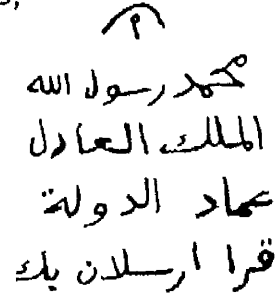 م
محمد رسول الله
الملك العادل
عماد الدولة
قرا ارسلان بك